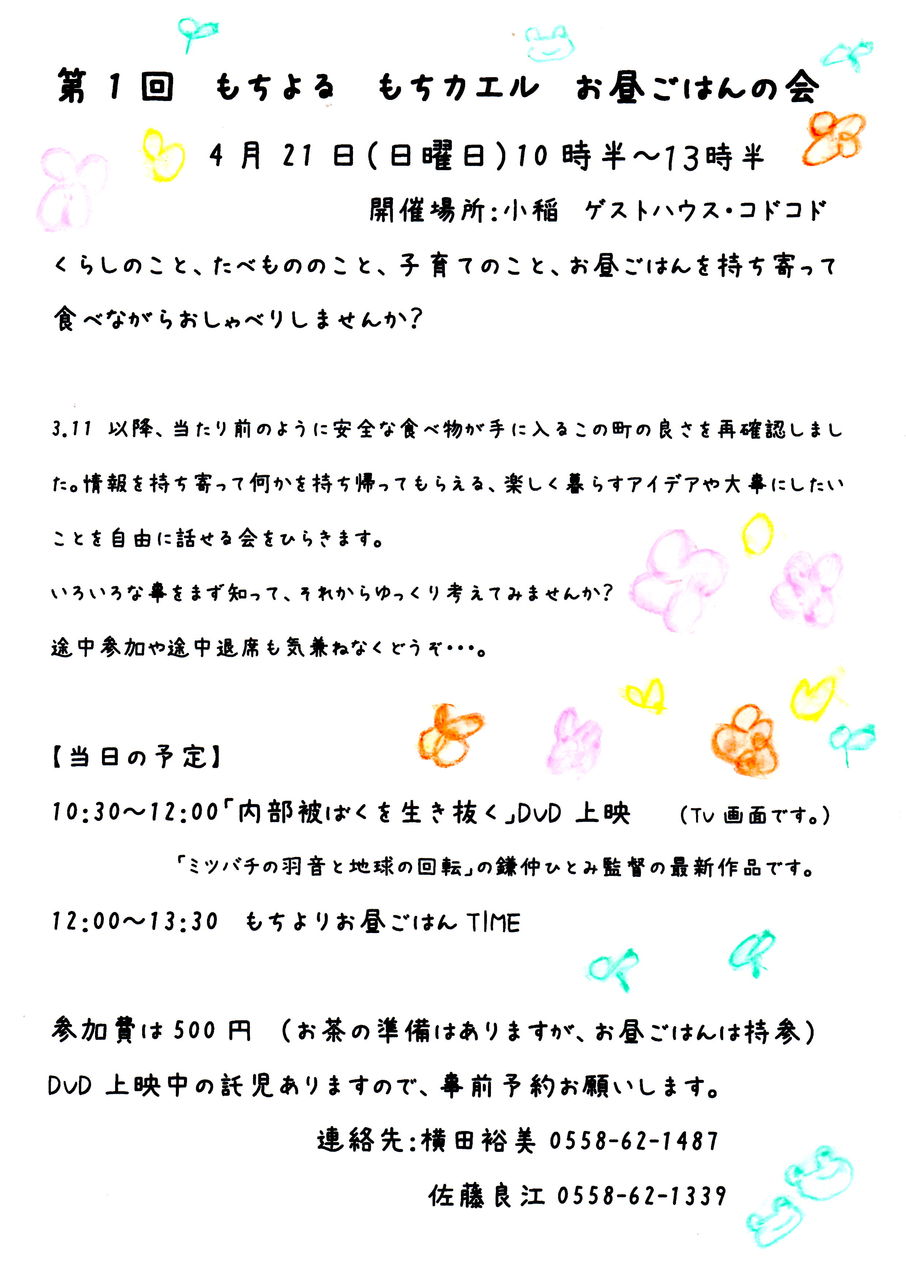 第1回　もちよる　もちカエル　お昼ごはんの会
4月21日(日曜日)10時半～13時半
開催場所:小稲　ゲストハウス・コドコド
くらしのこと、たべもののこと、子育てのこと、お昼ごはんを持ち寄って
食べながらおしゃべりしませんか?
3.11 以降、当たり前のように安全な食べ物が手に入るこの町の良さを再確認しまし
た。情報を持ち寄って何かを持ち帰ってもらえる、楽しく暮らすアイデアや大事にしたい
ことを自由に話せる会をひらきます。
いろいろな事をまず知って、それからゆっくり考えてみませんか?
途中参加や途中退席も気兼ねなくどうぞ・・・。
【当日の予定】
10:30～12:00「内部被ばくを生き抜く」DVD 上映　(TV 画面です。)
「ミツバチの羽音と地球の回転」の鎌仲ひとみ監督の最新作品です。
12:00～13:30　もちよりお昼ごはん TIME
参加費は500円　(お茶の準備はありますが、お昼ごはんは持参)
DVD 上映中の託児ありますので、事前予約お願いします。
連絡先:横田裕美 0558-62-1487
佐藤良江 0558-62-1339